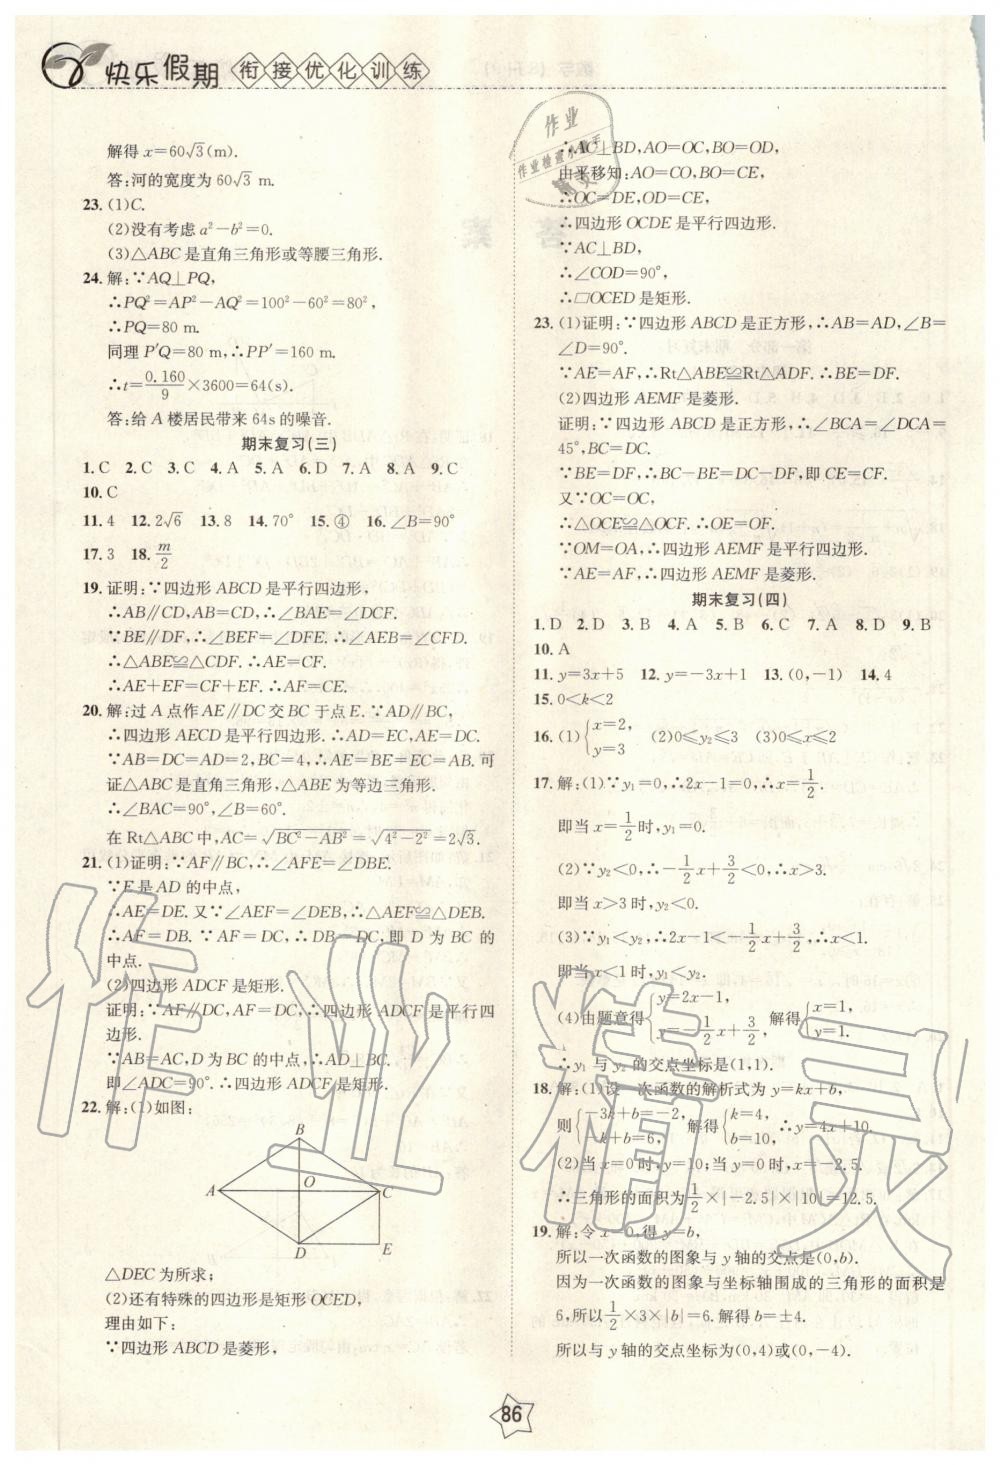 快乐假期 衔接优化训练
解得 x=60√3(m).
答:河的宽度为 60√3 m.
23. (1)C.
(2)没有考虑 a²-b²=0.
(3)△ABC 是直角三角形或等腰三角形.
24. 解:∵AQ⊥PQ,
∴PQ²=AP²-AQ²=100²-60²=80²,
∴PQ=80 m.
同理 P′Q=80 m,∴PP′=160 m.
∴t=0.160/9×3600=64(s).
答:给 A 楼居民带来 64s 的噪音.
期末复习(三)
1. C 2. C 3. C 4. A 5. A 6. D 7. A 8. A 9. C
10. C
11. 4 12. 2√6 13. 8 14. 70° 15. ④ 16. ∠B=90°
17. 3 18. m/2
19. 证明:∵四边形 ABCD 是平行四边形,
∴AB∥CD,AB=CD,∴∠BAE=∠DCF.
∵BE∥DF,∴∠BEF=∠DFE. ∴∠AEB=∠CFD.
∴△ABE≌△CDF. ∴AE=CF.
∴AE+EF=CF+EF. ∴AF=CE.
20. 解:过 A 点作 AE∥DC 交 BC 于点 E. ∵AD∥BC,
∴四边形 AECD 是平行四边形. ∴AD=EC,AE=DC.
∵AB=DC=AD=2,BC=4,∴AE=BE=EC=AB. 可
证△ABC 是直角三角形,△ABE 为等边三角形.
∴∠BAC=90°,∠B=60°.
在 Rt△ABC 中,AC=√(BC²-AB²)=√(4²-2²)=2√3.
21. (1)证明:∵AF∥BC,∴∠AFE=∠DBE.
∵E 是 AD 的中点,
∴AE=DE. 又∵∠AEF=∠DEB,∴△AEF≌△DEB.
∴AF=DB. ∵AF=DC,∴DB=DC,即 D 为 BC 的
中点.
(2)四边形 ADCF 是矩形.
证明:∵AF∥DC,AF=DC,∴四边形 ADCF 是平行四
边形.
∵AB=AC,D 为 BC 的中点,∴AD⊥BC.
即∠ADC=90°. ∴四边形 ADCF 是矩形.
22. 解:(1)如图:
B
A O C
D E
△DEC 为所求;
(2)还有特殊的四边形是矩形 OCED,
理由如下:
∵四边形 ABCD 是菱形,
∴AC⊥BD,AO=OC,BO=OD,
由平移知:AO=CO,BO=CE,
∴OC=DE,OD=CE.
∴四边形 OCDE 是平行四边形.
∵AC⊥BD,
∴∠COD=90°,
∴□OCED 是矩形.
23. (1)证明:∵四边形 ABCD 是正方形,∴AB=AD,∠B=
∠D=90°.
∵AE=AF,∴Rt△ABE≌Rt△ADF. ∴BE=DF.
(2)四边形 AEMF 是菱形.
证明:∵四边形 ABCD 是正方形,∴∠BCA=∠DCA=
45°,BC=DC.
∵BE=DF,∴BC-BE=DC-DF,即 CE=CF.
又∵OC=OC,
∴△OCE≌△OCF. ∴OE=OF.
∵OM=OA,∴四边形 AEMF 是平行四边形.
∵AE=AF,∴四边形 AEMF 是菱形.
期末复习(四)
1. D 2. D 3. B 4. A 5. B 6. C 7. A 8. D 9. B
10. A
11. y=3x+5 12. y=-3x+1 13. (0,-1) 14. 4
15. 0<k<2
16. (1){x=2, y=3 (2)0≤y₂≤3 (3)0≤x≤2
17. 解:(1)∵y₁=0,∴2x-1=0,∴x=1/2.
即当 x=1/2时,y₁=0.
(2)∵y₂<0,∴-1/2x+3/2<0,∴x>3.
即当 x>3 时,y₂<0.
(3)∵y₁<y₂,∴2x-1<-1/2x+3/2,∴x<1.
即当 x<1 时,y₁<y₂.
(4)由题意得{y=2x-1, y=-1/2x+3/2, 解得{x=1, y=1.
∴y₁ 与 y₂ 的交点坐标是(1,1).
18. 解:(1)设一次函数的解析式为 y=kx+b,
则{-3k+b=-2, -k+b=6, 解得{k=4, b=10, ∴y=4x+10.
(2)当 x=0 时,y=10;当 y=0 时,x=-2.5.
∴三角形的面积为1/2×|-2.5|×|10|=12.5.
19. 解:令 x=0,得 y=b,
所以一次函数的图象与 y 轴的交点是(0,b).
因为一次函数的图象与坐标轴围成的三角形的面积是
6,所以1/2×3×|b|=6. 解得 b=±4.
所以与 y 轴的交点坐标为(0,4)或(0,-4).
86
作业
作业检查小助手
作业精灵